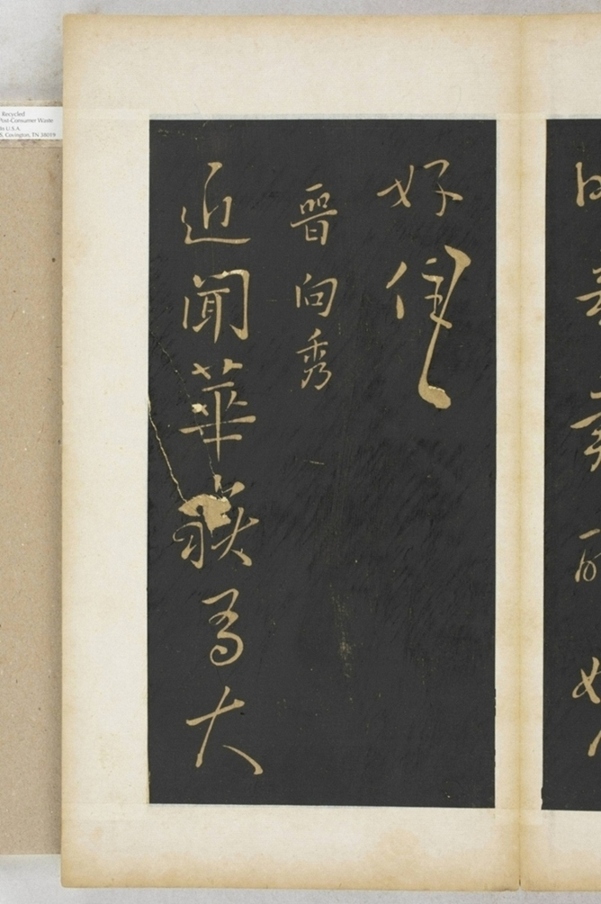 好
晉向秀
近聞華嶽為大
Recycled
Post-Consumer Waste
in U.S.A.
Covington, TN 38019